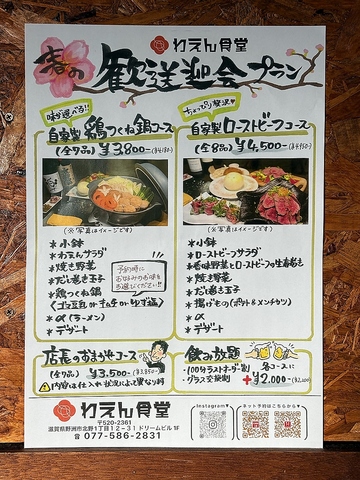 わえん食堂
春の
歓送迎会プラン
味が選べる!!
自家製 鶏つくね鍋コース
(全7品) ¥3,800- (¥4,180-)
(※写真はイメージです)
*小鉢
*わえんサラダ
*焼き野菜
*だし巻き玉子
*鶏つくね鍋
(ゴマ豆乳 or キムチ or ゆず塩)
*〆(ラーメン)
*デザート
予約時に
お好みのお味を
お選びください!!
ちょっぴり贅沢♥
自家製 ローストビーフコース
(全8品) ¥4,500- (¥4,950-)
(※写真はイメージです)
*小鉢
*ローストビーフサラダ
*香味野菜とローストビーフの生春巻き
*焼き野菜
*だし巻き玉子
*揚げもの(ポテト&メンチカツ)
*〆
*デザート
店長のおまかせコース
(全7品) ¥3,500- (¥3,850-)
内容は仕入や状況によって異なります
飲み放題
・100分ラストオーダー制
・グラス交換制
各コースに
+¥2,000- (¥2,200)
わえん食堂
〒520-2361
滋賀県野洲市北野1丁目12-31 ドリームビル1F
☎ 077-586-2831
Instagram▼
ネット予約はこちらから▼